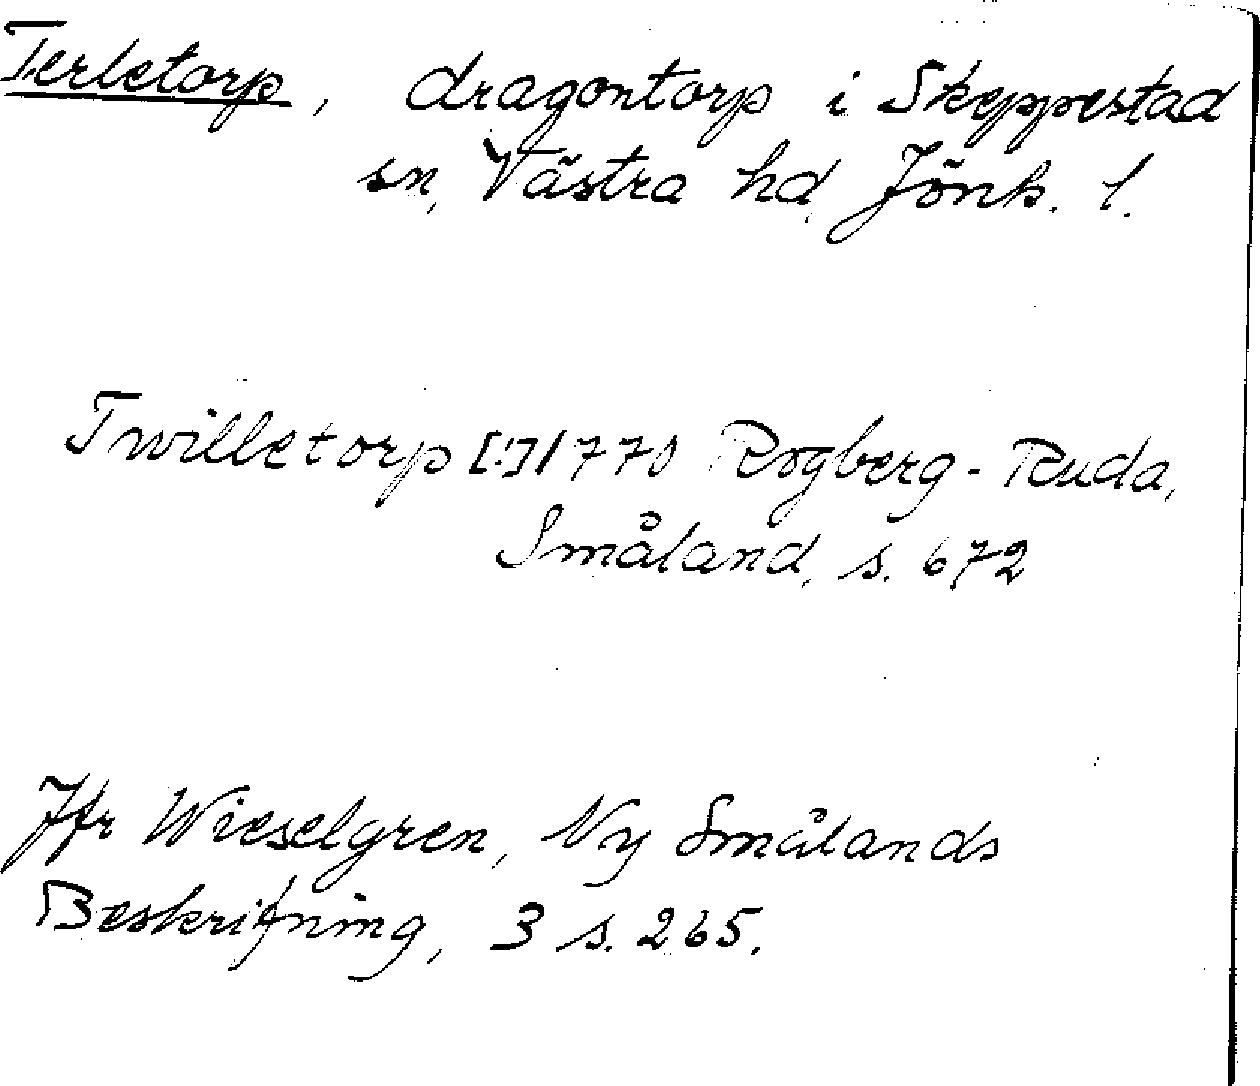 Terletorp, dragontorp i Skeppestad
sn, Västra hd, Jönk. l.
Twilletorp [!] 1770 Rogberg-Ruda,
Småland, s. 672
Jfr Wieselgren, Ny Smålands
Beskrifning, 3 s. 265.